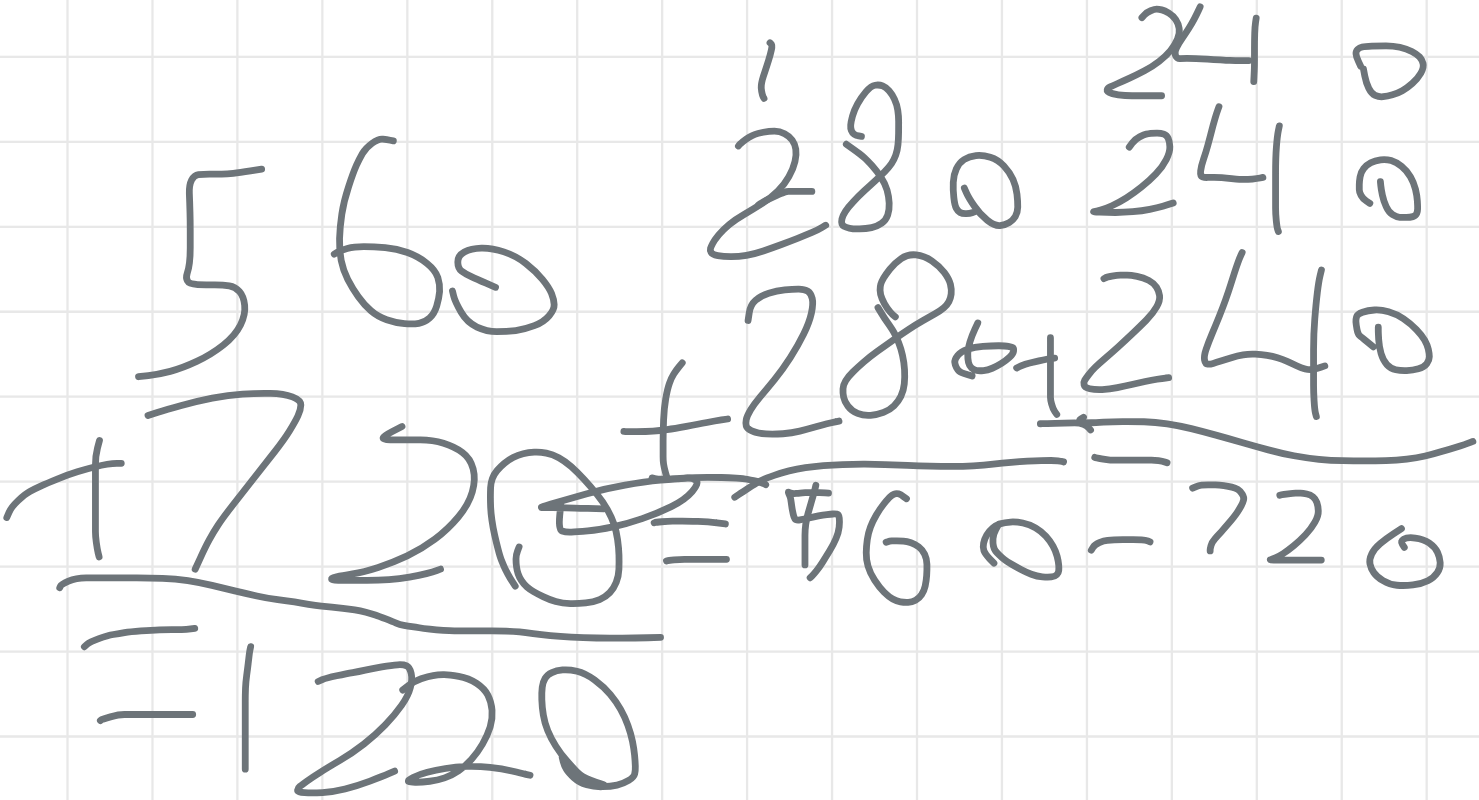 560
+ 720
= 1220
1
280
+ 280
= 560
240
240
+ 240
= 720